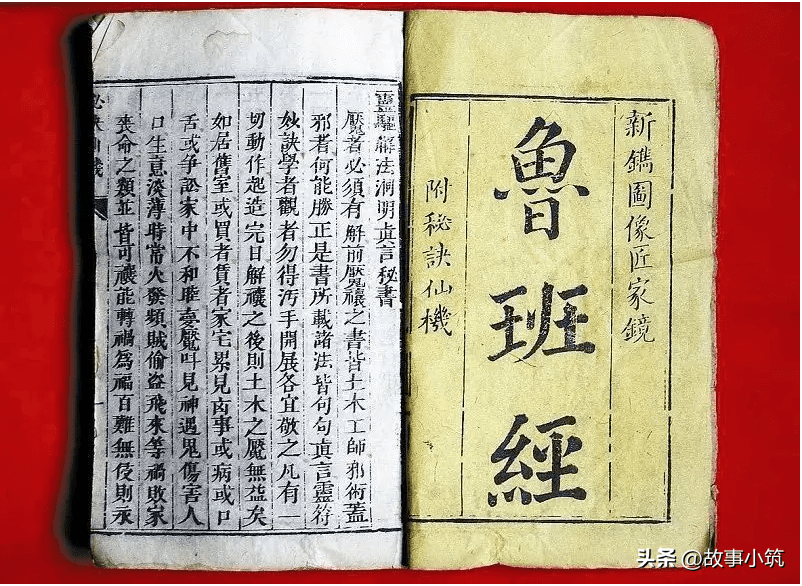 新鐫圖像匠家鏡
魯班經
附秘訣仙機
靈驅解法洞明眞言秘書
魘者必須有解前魘禳之書皆土木工師邪術蓋
邪者何能勝正是書所載諸法皆句句眞言靈符
妙訣學者觀者勿得汚手開展各宜敬之凡有一
切動作起造完日解禳之後則土木之魘無益矣
如居舊室或買者賃者家宅累見凶事或病或口
舌或爭訟家中不和魘呌見神遇鬼傷害人
口生意淡薄時常火發類賊偷盜飛來等禍敗家
喪命之類並皆可禳能轉禍爲福百難無侵則永
头条 @故事小筑